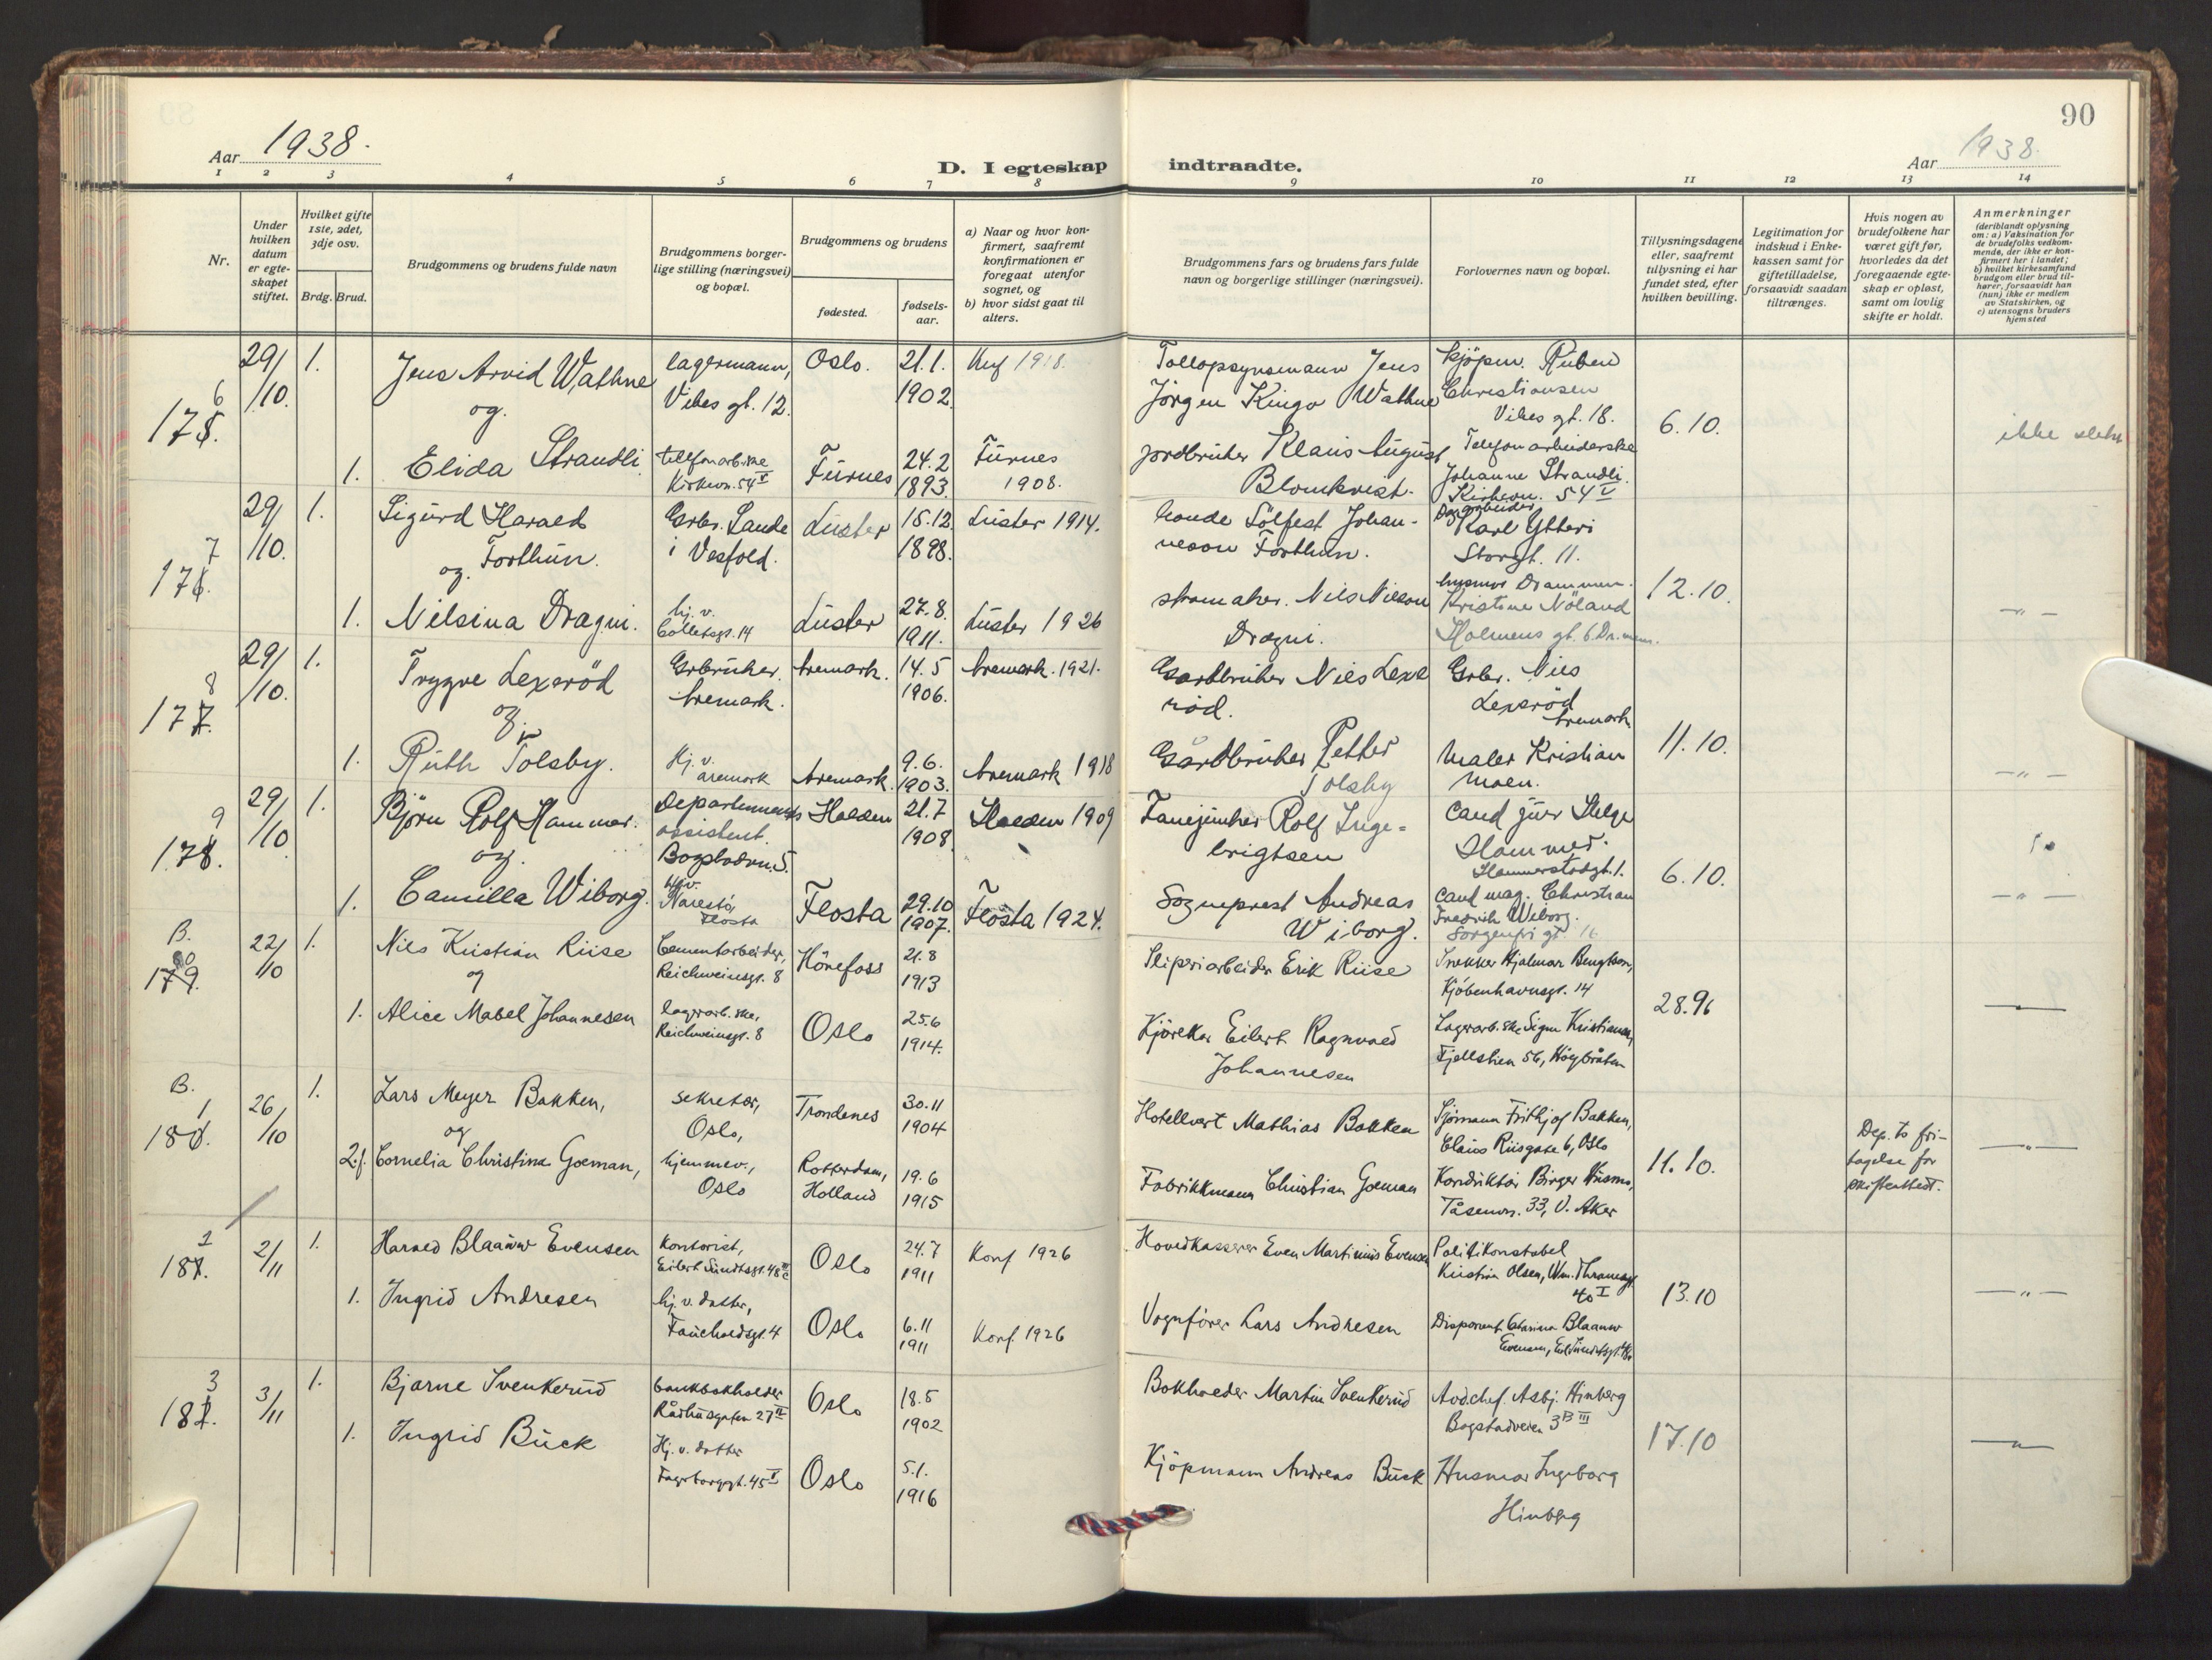 90
Aar 1938.
D. I egteskap
indtraadte.
Aar 1938.
1 2 3 4 5 6 7 8 9 10 11 12 13 14
Nr.
Under hvilken datum er egte-skapet stiftet.
Hvilket gifte 1ste, 2det, 3dje osv.
Brdg. Brud.
Brudgommens og brudens fulde navn
Brudgommens borger-lige stilling (næringsvei) og bopæl.
Brudgommens og brudens
fødested.
fødsels-aar.
a) Naar og hvor kon-firmert, saafremt konfirmationen er foregaat utenfor sognet, og
b) hvor sidst gaat til alters.
Brudgommens fars og brudens fars fulde navn og borgerlige stillinger (næringsvei).
Forlovernes navn og bopæl.
Tillysningsdagene eller, saafremt tillysning ei har fundet sted, efter hvilken bevilling.
Legitimation for indskud i Enke-kassen samt for giftetilladelse, forsaavidt saadan tiltrænges.
Hvis nogen av brudefolkene har været gift før, hvorledes da det foregaaende egte-skap er opløst, samt om lovlig skifte er holdt.
Anmerkninger (deriblandt oplysning om: a) Vaksination for de brudefolks vedkom-mende, der ikke er kon-firmert her i landet; b) hvilket kirkesamfund brudgom eller brud til-hører, forsaavidt han (hun) ikke er medlem av Statskirken, og c) utensogns bruders hjemsted
6
175.
29/10. 1. Jens Arvid Wathne
og.
lagermann,
Vibes gt. 12.
Oslo.
21.1.
1902.
Knf 1918.
Tollopsynsmann Jens
Jörgen Kingo Wathne
Kjöpm. Ruben
Christiansen
Vibes gt. 18.
6.10.
ikke slekt
1. Elida Strandli
telefonarb.ske
Kirkevn. 54 V
Furnes
24.2
1893.
Furnes
1908.
jordbruker Klaus August
Blomkvist.
Telefonarbeiderske
Johanne Strandli.
Kirkevn. 54 V
7
176.
29/10. 1. Sigurd Harald
Forthun.
og.
Grbr. Sande
i Vesfold.
Luster
15.12.
1898.
Luster 1914.
Sölfest Johan-
nesson Forthun.
Karl Ytteri
Storgt. 11.
12.10.
1. Nilsina Drægni.
hj. v.
Colletsgt. 14
Luster
27.8.
1911.
Luster 1926
skomaker. Nils Nilson
Drægni.
husmor Drammen.
Kristine Nöland
Holmens gt. 6 Dr.men.
— " —
8
177.
29/10. 1. Trygve Lexeröd
og.
Grbruker.
Aremark.
Aremark.
14.5
1906.
Aremark. 1921.
Gardbruker Nils Lexe
röd.
Grbr. Nils
Lexeröd
Aremark
11.10.
1. Ruth Tolsby.
Hj. v.
Aremark
Aremark.
9.6.
1903.
Aremark 1918
Gårdbruker Petter
Tolsby
Maler Kristian
Moen.
— " —
9
178.
29/10 1. Björn Rolf Hammer.
og.
Departements
assistent.
Bogstadvn. 5.
Halden
21.7
1908.
Halden 1909
Fanejunker Rolf Inge-
brigtsen
Cand jur Helge
Hammer.
Hammerstadgt. 1.
6.10.
1. Camilla Wiborg.
Hj.v.
Narestö,
Flosta
Flosta
29.10
1907.
Flosta 1924.
Sogneprest Andreas
Wiborg.
Cand mag. Christian
Fredrik Wiborg.
Sorgenfri gt. 16
— " —
B.
80
179.
22/10 1. Nils Kristian Riise
og
Cementarbeider,
Reichweinsgt. 8
Hönefoss
21.8
1913
Sliperiarbeider Erik Riise
Trekker Hjalmar Bengtson,
Kjöbenhavnsgt. 14
28.9.
1. Alice Mabel Johannesen
lagerarb.ske,
Reichweinsgt. 8
Oslo
25.6
1914.
Kjörekar Eilert Ragnvald
Johannesen
Lagerarb.ske Signe Kristiansen,
Fjellstien 56, Höybråten
— " —
B.
1
180.
26/10 1. Lars Meyer Bakken,
og
sekretær,
Oslo,
Trondenes
30.11
1904
Hotellvert Mathias Bakken
Sjömann Frithjof Bakken,
Claus Riisgate 6, Oslo
11.10.
Dep. ts fri-
tagelse for
skifteattest.
2.f. Cornelia Christina Goeman,
hjemmev.,
Oslo
Rotterdam,
Holland
19.6
1915
Fabrikkmann Christian Goeman
Konduktör Birger
Tåsenvn. 33, V. Aker
— " —
2
181.
2/11 1. Harald Blaauw Evensen
Kontorist,
Eilert Sundtsgt. 48 III c
Oslo
24.7
1911
Konf 1926
Hovedkasserer Even Martinius Evensen
Politikonstabel
Kristian Olsen, Wm. Thranesgt.
40 I
13.10
1. Ingrid Andresen
hj. v. datter,
Fauchaldsgt. 4
Oslo
6.11
1911
Konf. 1926
Vognförer Lars Andresen
Disponent Blaauw
Evensen, Eil. Sundtsgt. 48c
— " —
3
182.
3/11 1. Bjarne Svenkerud
bankbokholder
Rådhusgaten 27 II
Oslo
18.5
1902
Bokholder Martin Svenkerud
Avd.chef. Asbj. Hinberg
Bogstadveien 3 B III
17.10
1. Ingrid Buck
Hj. v. datter
Fagerborggt. 45 I
Oslo
5.1.
1916
Kjöpmann Andreas Buck
Husmor Ingeborg
Hinberg
— " —